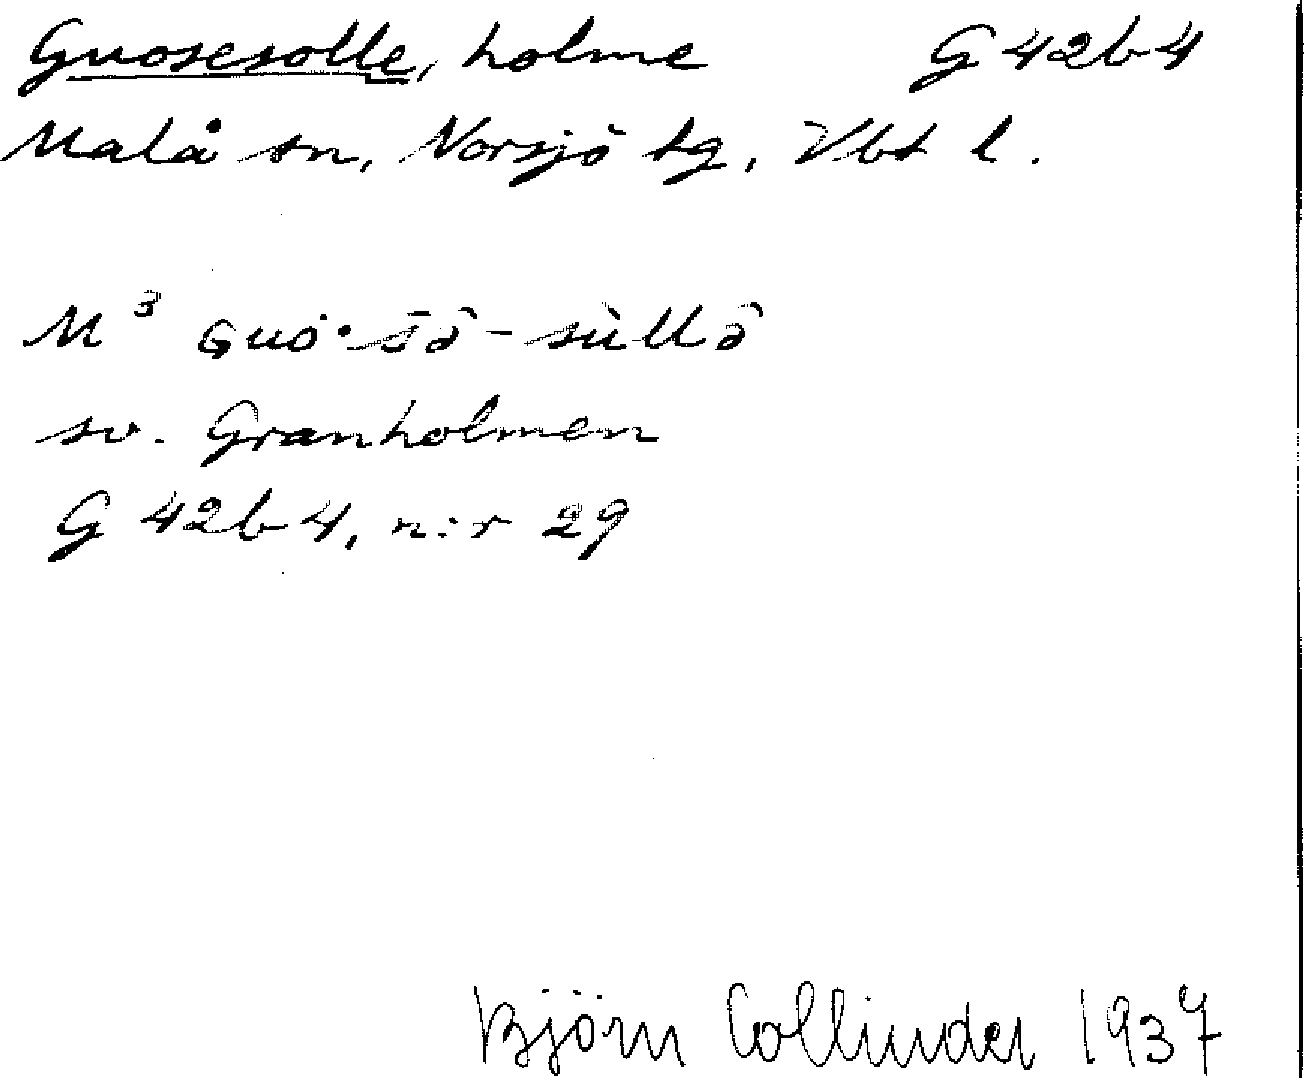 Guosesolle, holme G 42b4
Malå sn, Norsjö tg, Vbt l.
M³
sv. Granholmen
G 42b4, n:r 29
Björn Collinder 1937